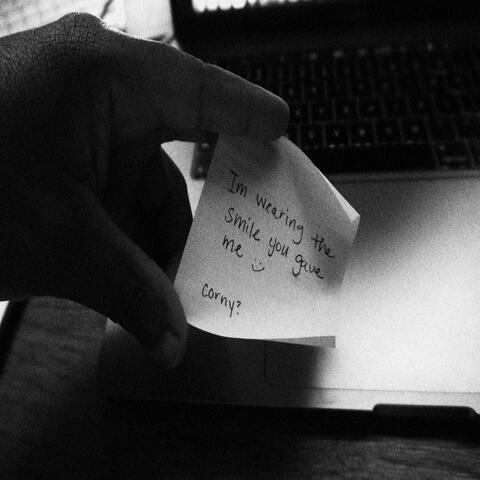 Im wearing the
smile you gave
me :)
corny?